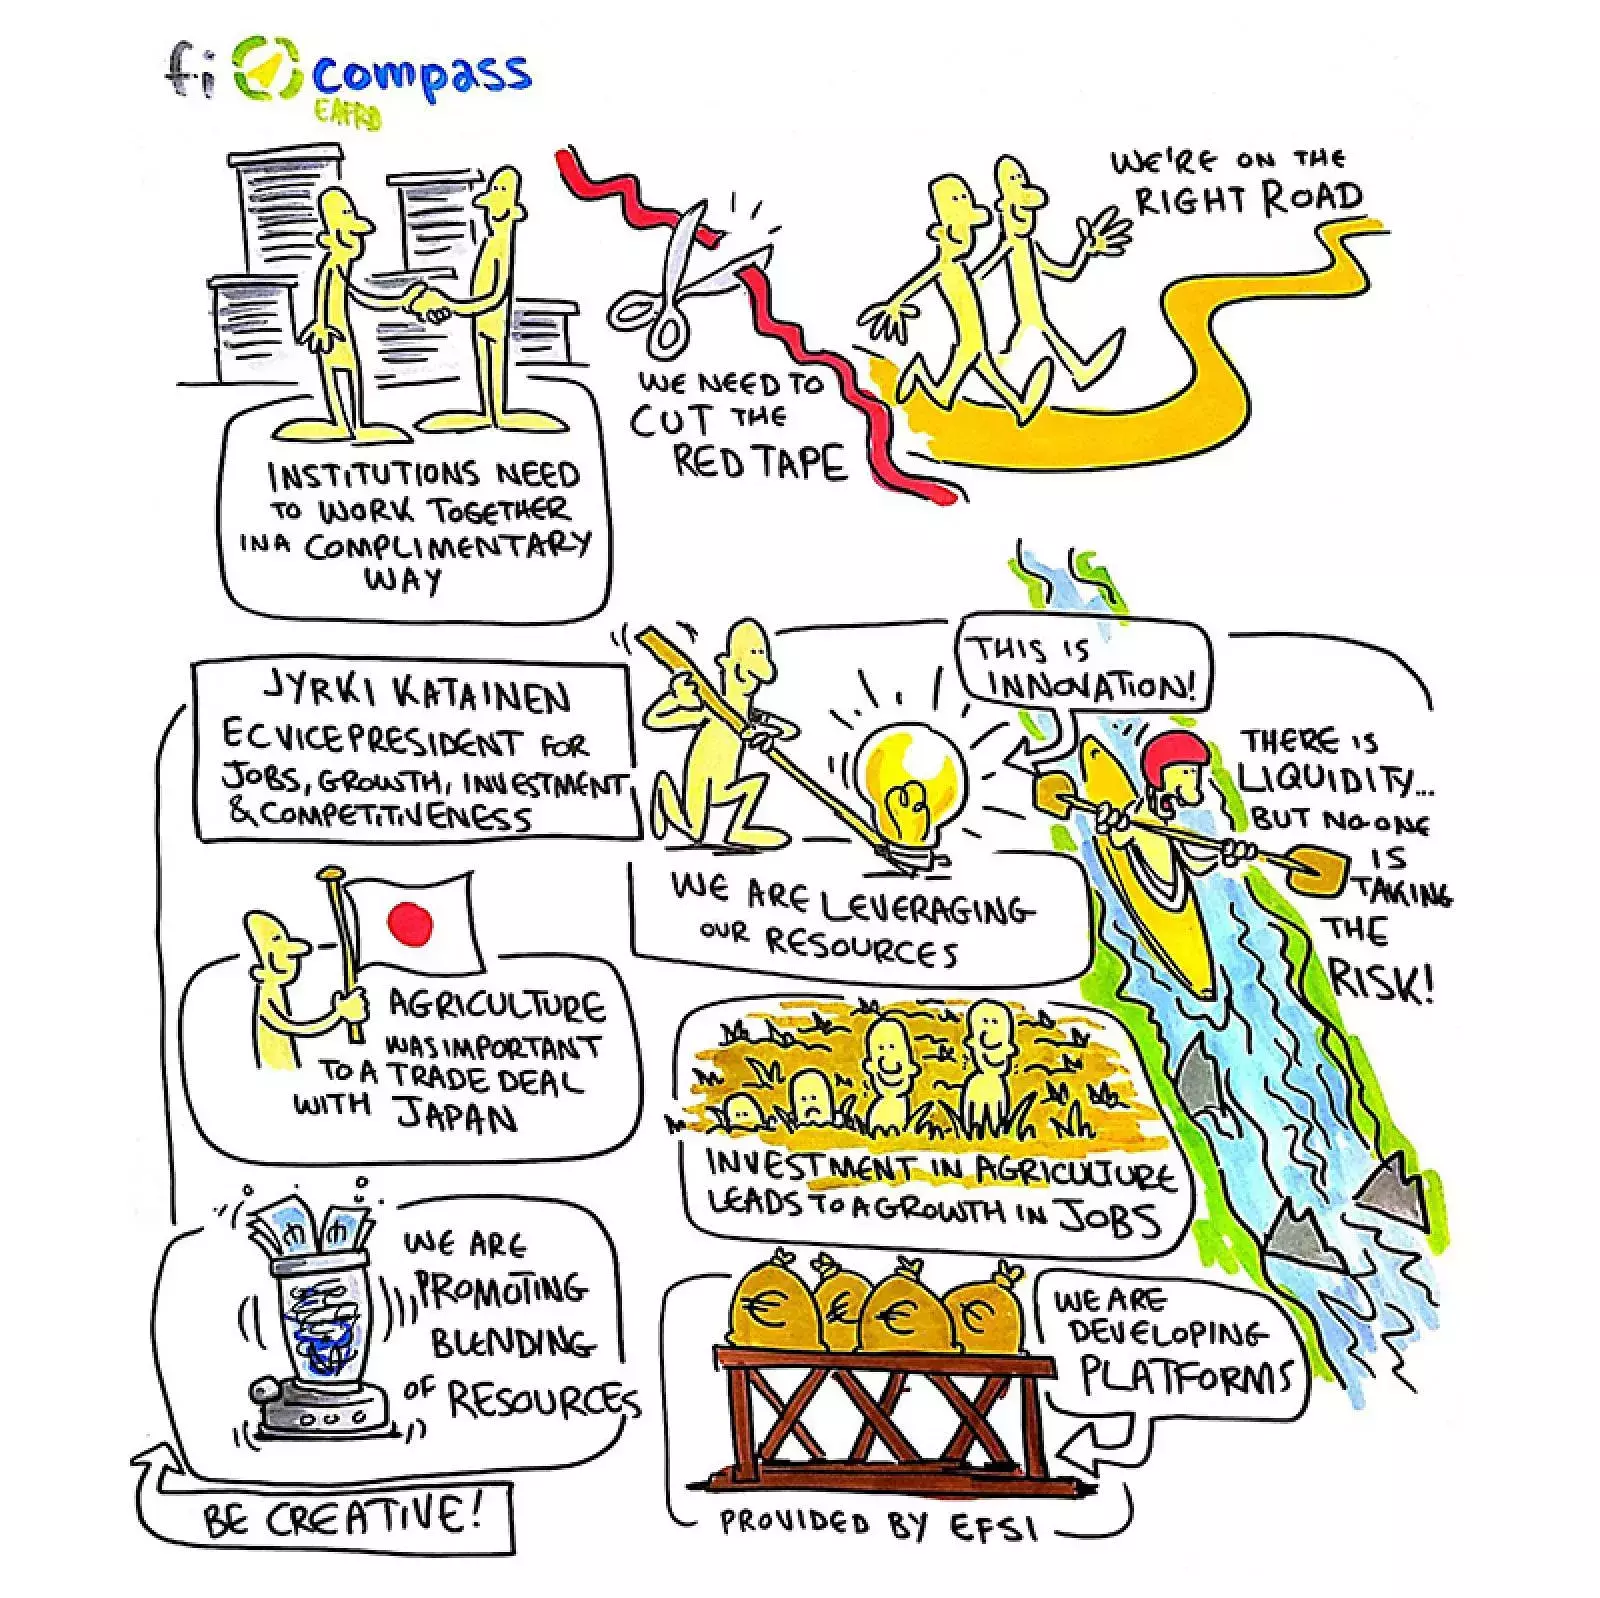 fi compass
EAFRD
WE'RE ON THE
RIGHT ROAD
WE NEED TO
CUT THE
RED TAPE
INSTITUTIONS NEED
TO WORK TOGETHER
IN A COMPLIMENTARY
WAY
JYRKI KATAINEN
EC VICE PRESIDENT FOR
JOBS, GROWTH, INVESTMENT
& COMPETITIVENESS
THIS IS
INNOVATION!
WE ARE LEVERAGING
OUR RESOURCES
THERE IS
LIQUIDITY...
BUT NO ONE
IS
TAKING
THE
RISK!
AGRICULTURE
WAS IMPORTANT
TO A TRADE DEAL
WITH JAPAN
INVESTMENT IN AGRICULTURE
LEADS TO A GROWTH IN JOBS
WE ARE
PROMOTING
BLENDING
OF RESOURCES
BE CREATIVE!
€ € € €
WE ARE
DEVELOPING
PLATFORMS
PROVIDED BY EFSI